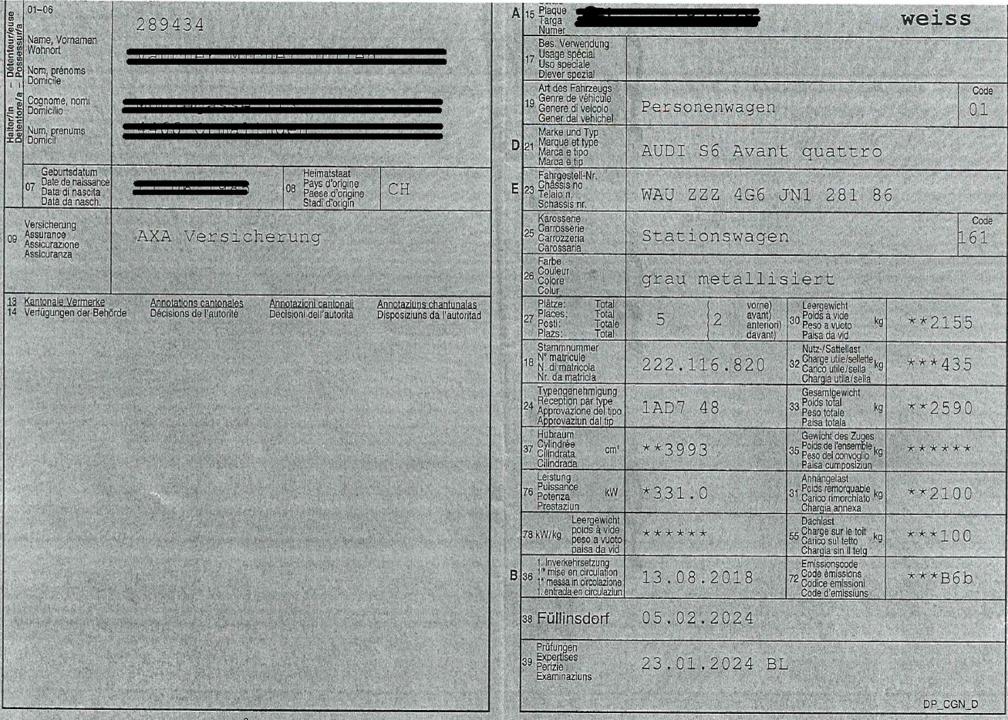 01-06
Halter/in – Détenteur/euse
Detentore/a – Possessur/a
289434
Name, Vornamen
Wohnort
Nom, prénoms
Domicile
Cognome, nomi
Domicilio
Num, prenums
Domicil
07
Geburtsdatum
Date de naissance
Data di nascita
Data da nasch.
08
Heimatstaat
Pays d'origine
Paese d'origine
Stadi d'origin
CH
09
Versicherung
Assurance
Assicurazione
Assicuranza
AXA Versicherung
13 Kantonale Vermerke Annotations cantonales Annotazioni cantonali Annotaziuns chantunalas
14 Verfügungen der Behörde Décisions de l'autorité Decisioni dell'autorità Disposiziuns da l'autoritad
A 15
Plaque
Targa
Numer
weiss
17
Bes. Verwendung
Usage spécial
Uso speciale
Diever spezial
19
Art des Fahrzeugs
Genre de véhicule
Genere di veicolo
Gener dal vehichel
Personenwagen
Code
01
D 21
Marke und Typ
Marque et type
Marca e tipo
Marca e tip
AUDI S6 Avant quattro
E 23
Fahrgestell-Nr.
Châssis no
Telaio n.
Schassis nr.
WAU ZZZ 4G6 JN1 281 86
25
Karosserie
Carrosserie
Carrozzeria
Carossaria
Stationswagen
Code
161
26
Farbe
Couleur
Colore
Colur
grau metallisiert
27
Plätze: Total
Places: Total
Posti: Totale
Plazs: Total
5 (2
vorne)
avant)
anteriori)
davant)
30
Leergewicht
Poids à vide
Peso a vuoto
Paisa da vid
kg
**2155
18
Stammnummer
N° matricule
N. di matricola
Nr. da matricla
222.116.820
32
Nutz-/Sattellast
Charge utile/sellette
Carico utile/sella
Chargia utila/sella
kg
***435
24
Typengenehmigung
Réception par type
Approvazione del tipo
Approvaziun dal tip
1AD7 48
33
Gesamtgewicht
Poids total
Peso totale
Paisa totala
kg
**2590
37
Hubraum
Cylindrée
Cilindrata
Cilindrada
cm³
**3993
35
Gewicht des Zuges
Poids de l'ensemble
Peso del convoglio
Paisa cumposiziun
******
76
Leistung
Puissance
Potenza
Prestaziun
kW
*331.0
31
Anhängelast
Poids remorquable
Carico rimorchiato
Chargia annexa
kg
**2100
78 kW/kg
Leergewicht
poids à vide
peso a vuoto
paisa da vid
******
55
Dachlast
Charge sur le toit
Carico sul tetto
Chargia sin il tetg
kg
***100
B 36
1. Inverkehrsetzung
1re mise en circulation
1a messa in circolazione
1. entrada en circulaziun
13.08.2018
72
Emissionscode
Code émissions
Codice emissioni
Code d'emissiuns
***B6b
38 Füllinsdorf 05.02.2024
39
Prüfungen
Expertises
Perizie
Examinaziuns
23.01.2024 BL
DP_CGN_D